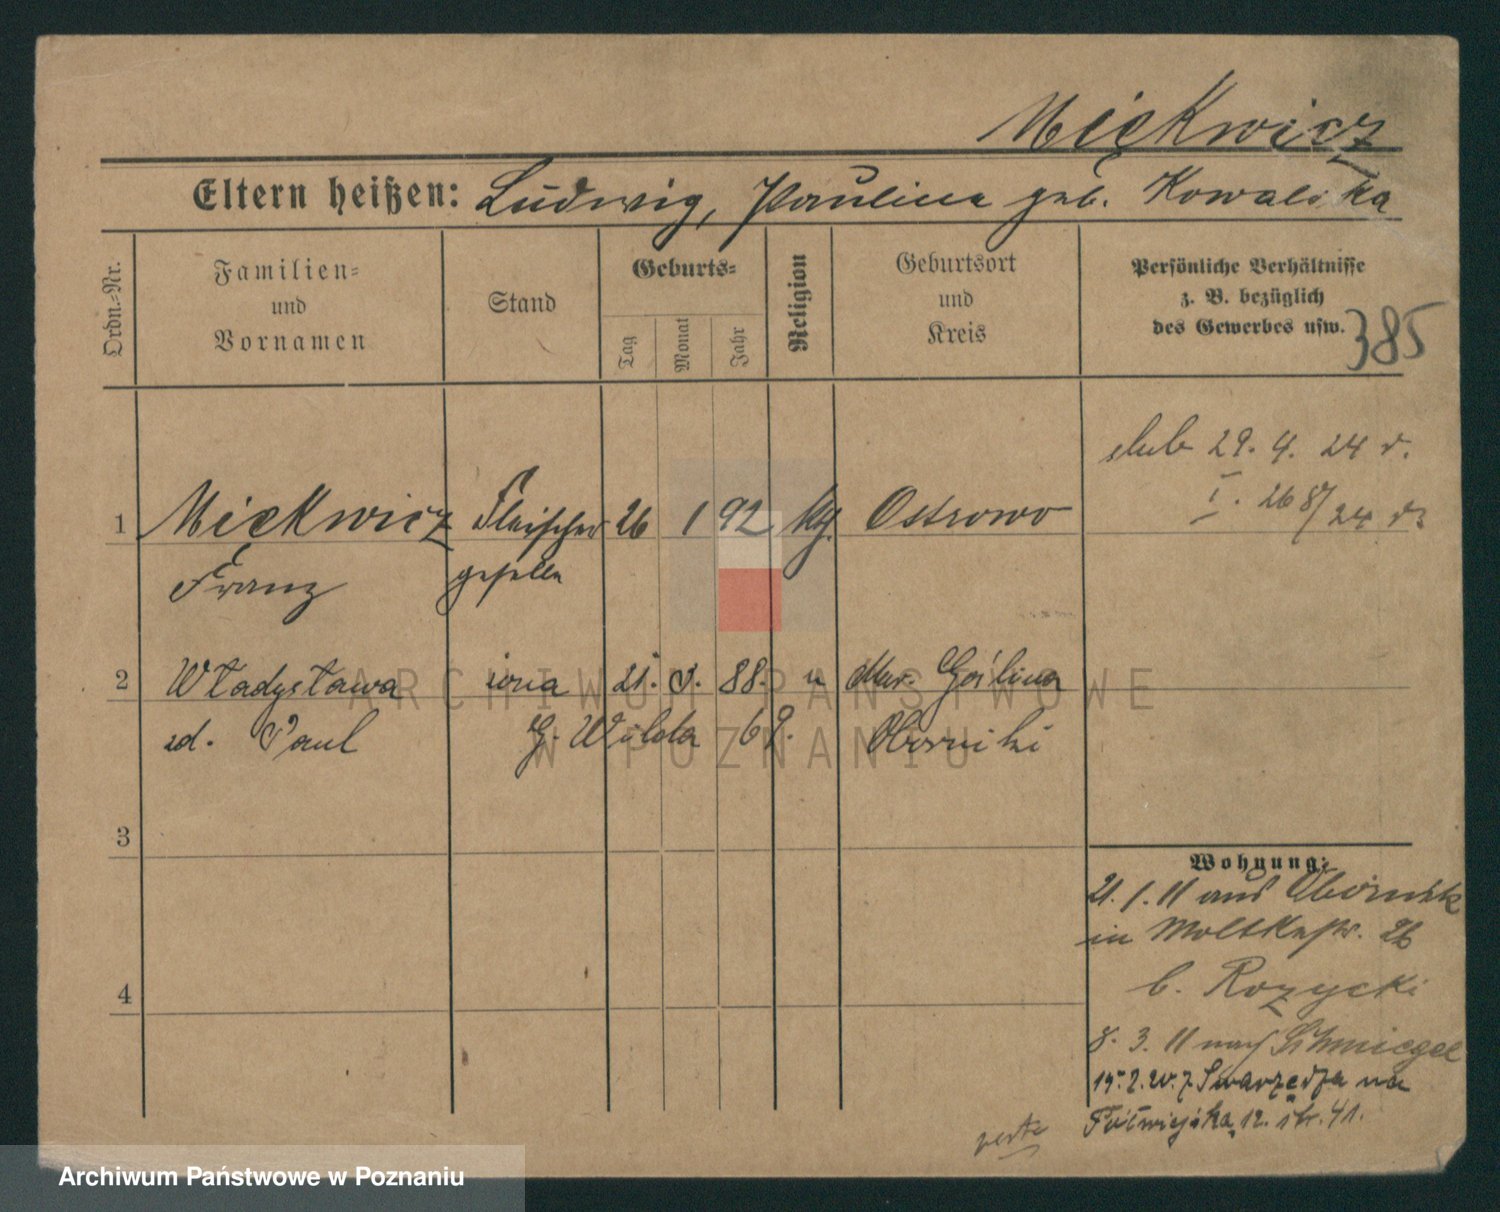 Mickwicz
Eltern heißen: Ludwig, Paulina geb. Kowalska
Ordn.-Nr.
Familien-
und
Vornamen
Stand
Geburts-
Tag
Monat
Jahr
Religion
Geburtsort
und
Kreis
Persönliche Verhältnisse
z. B. bezüglich
des Gewerbes usw.
385
ślub 29. 4. 24 r.
I. 26 8/24
1 Mickwicz Fleischer 26 1 92 kg. Ostrowo
Franz geselle
2 Władysława żona 21. 5. 88. " Mur. Goślina
zd. Paul G. Wilda 69. Oborniki
3
4
Wohnung:
21. 1. 11 aus Obornik
in Moltkestr. 26
b. Rozycki
8. 3. 11 nach Schmiegel
Swarzędza na
12. 41.
ARCHIWUM PAŃSTWOWE
W POZNANIU
Archiwum Państwowe w Poznaniu